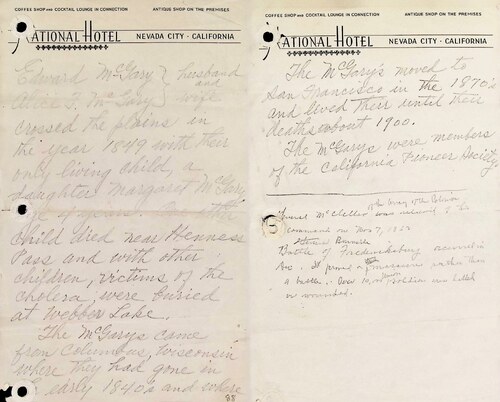 COFFEE SHOP AND COCKTAIL LOUNGE IN CONNECTION
ANTIQUE SHOP ON THE PREMISES
NATIONAL HOTEL
NEVADA CITY - CALIFORNIA
Edward McGary } husband
and
Alice F. McGary } wife
crossed the plains in
the year 1849 with their
only living child, a
daughter Margaret McGary
of years. One other
child died near Henness
Pass and with other
children, victims of the
cholera, were buried
at Webber Lake.
The McGarys came
from Columbus, Wisconsin
where they had gone in
early 1840's and where
88
COFFEE SHOP AND COCKTAIL LOUNGE IN CONNECTION
ANTIQUE SHOP ON THE PREMISES
NATIONAL HOTEL
NEVADA CITY - CALIFORNIA
The McGary's moved to
San Francisco in the 1870's
and lived their until their
deaths about 1900.
The McGarys were members
of the California Pioneer Society.
McClellan was relieved of his
command on Nov 7, 1862
Battle of Fredericksburg occurred in
Dec. It proved a massacre rather than
a battle. Over killed
or wounded.